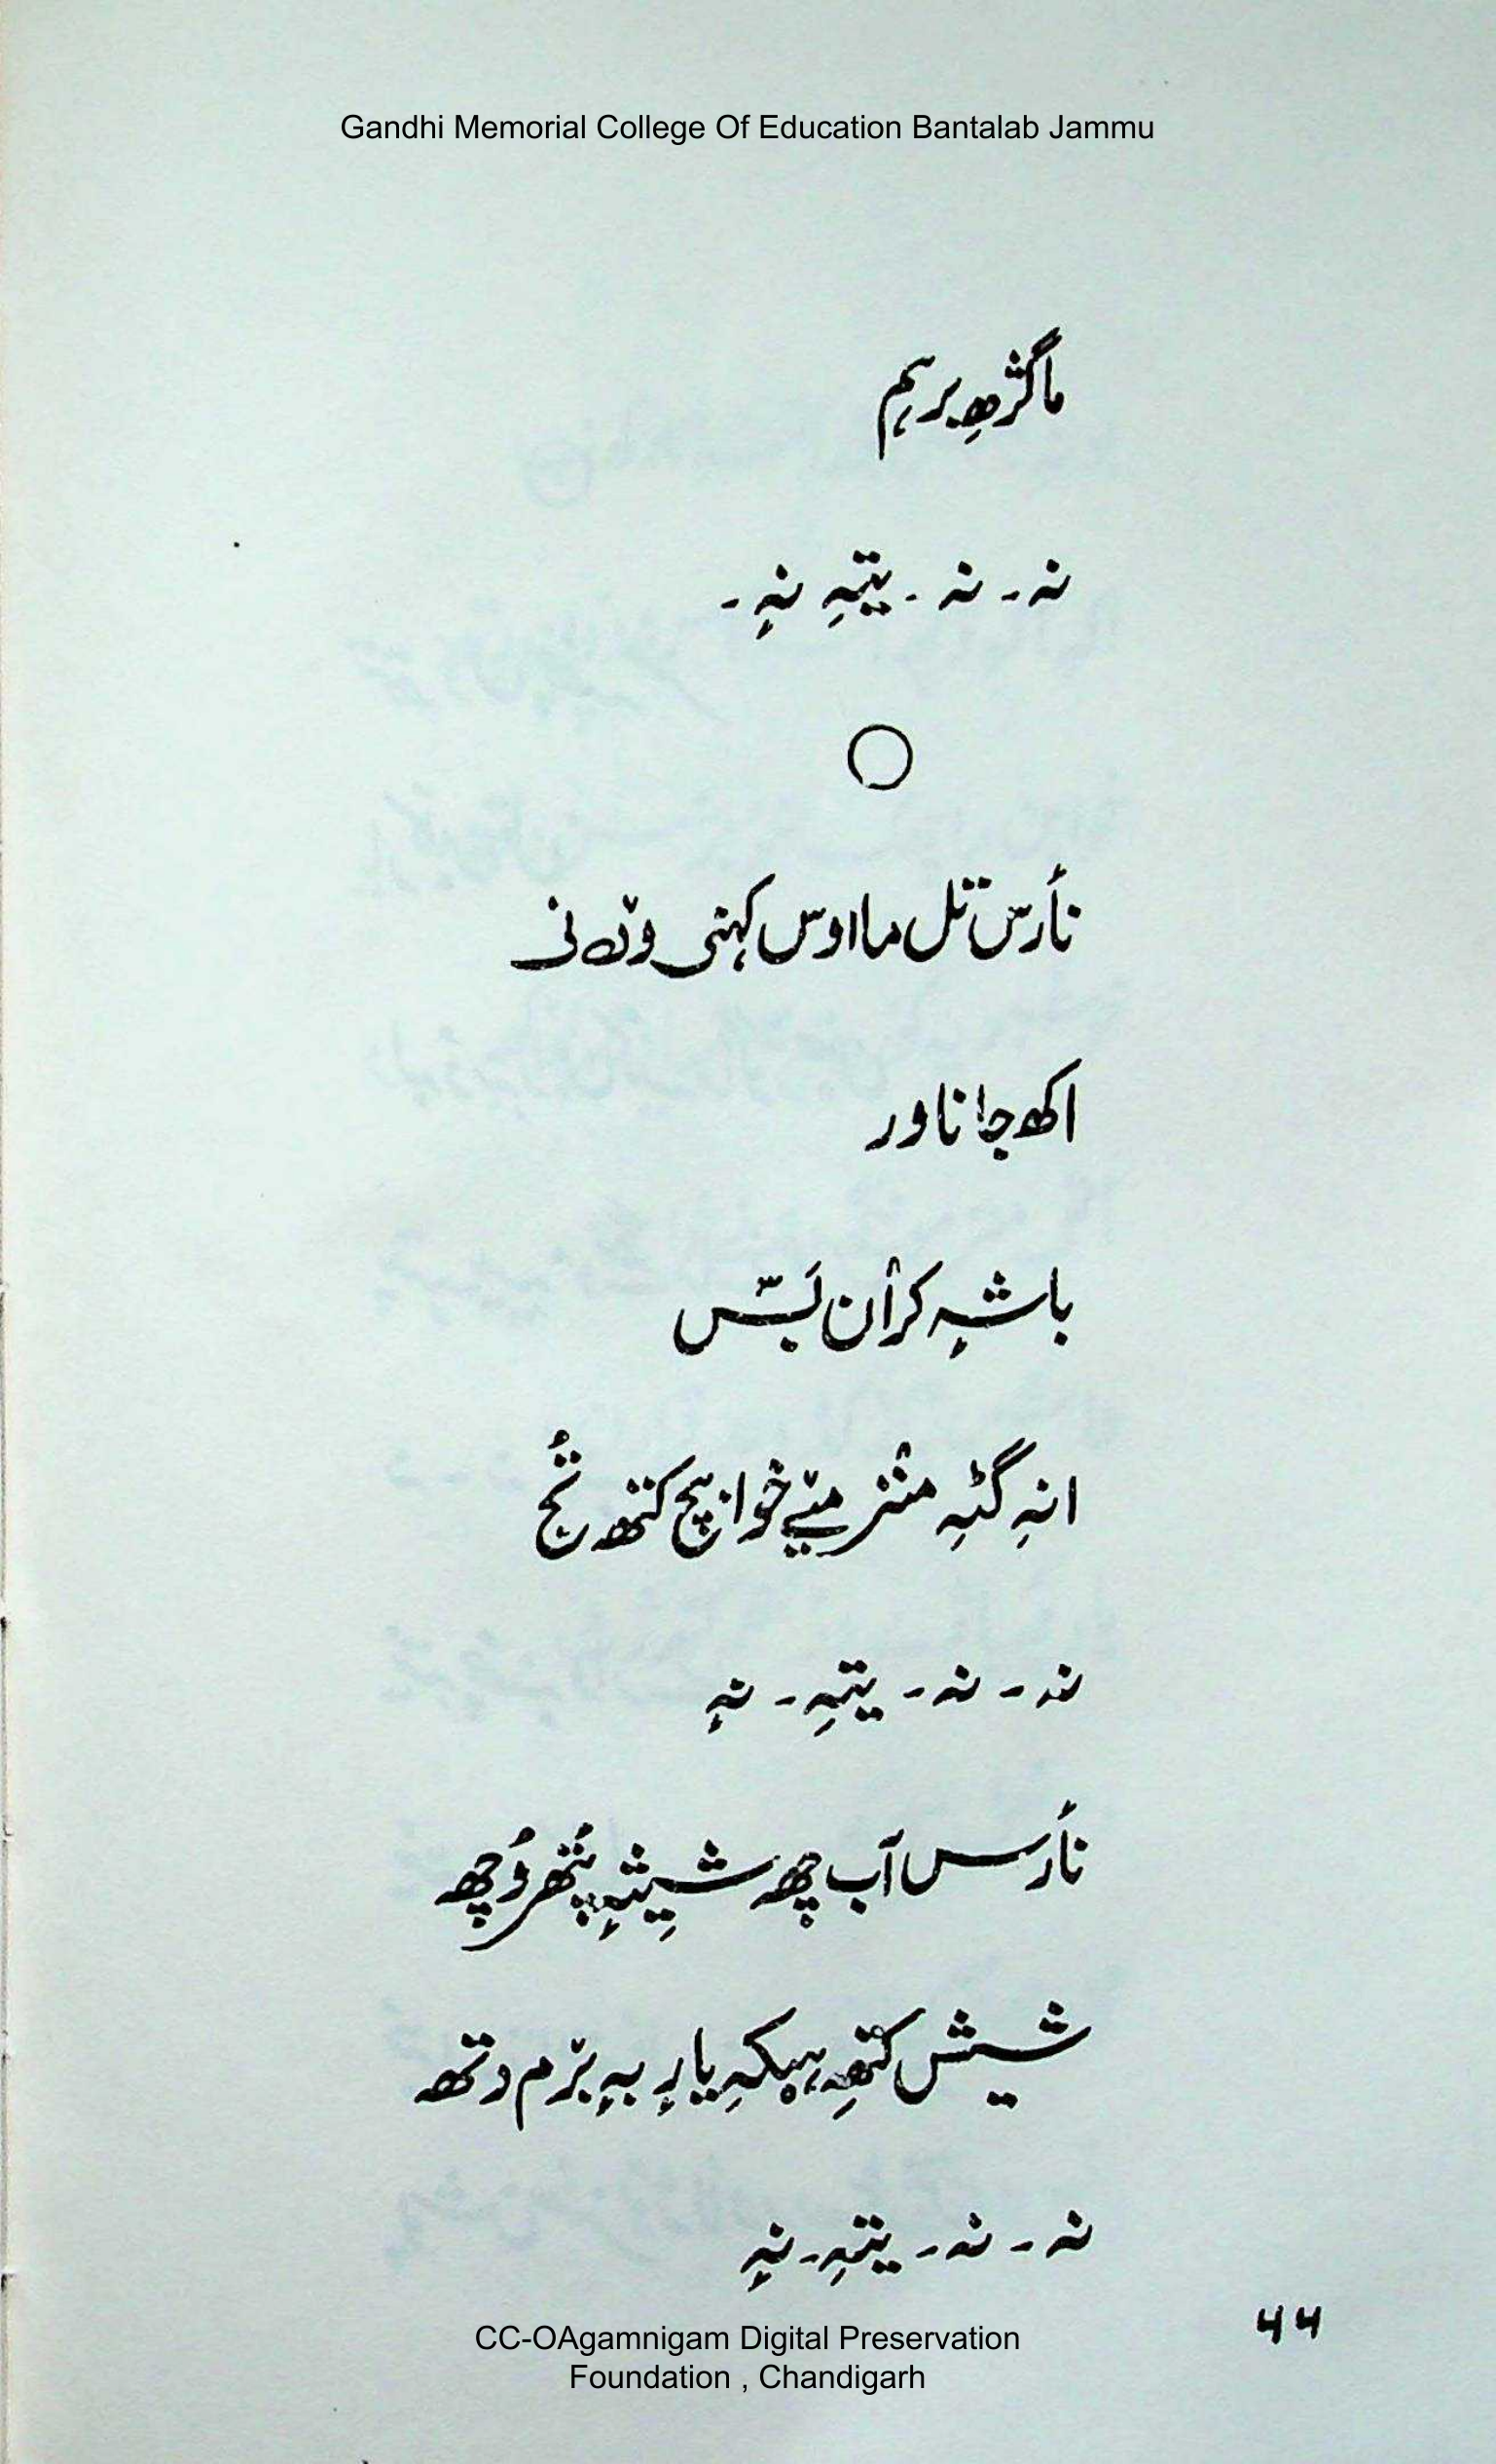 Gandhi Memorial College Of Education Bantalab Jammu
ماگژھِ برہم
نہ ۔ نہ ۔ یتہِ نہٕ ۔
نٲرس تَل ما اوس کہنی وۄنی
اکھ جاناور
باشہٕ کرٲن لَسّ
انہِ گٹہِ منٛز میٚے خوابچ کتھ تُج
نہ ۔ نہ ۔ یتہِ ۔ نہٕ
نٲرس آب چھ شیشہٕ پُتھر وُچھ
شیش کتھہِ ہیکہِ یارٕ بہٕ برٛم دتھ
نہ ۔ نہ ۔ یتہِ ۔ نہٕ
۶۶
CC-OAgamnigam Digital Preservation
Foundation , Chandigarh